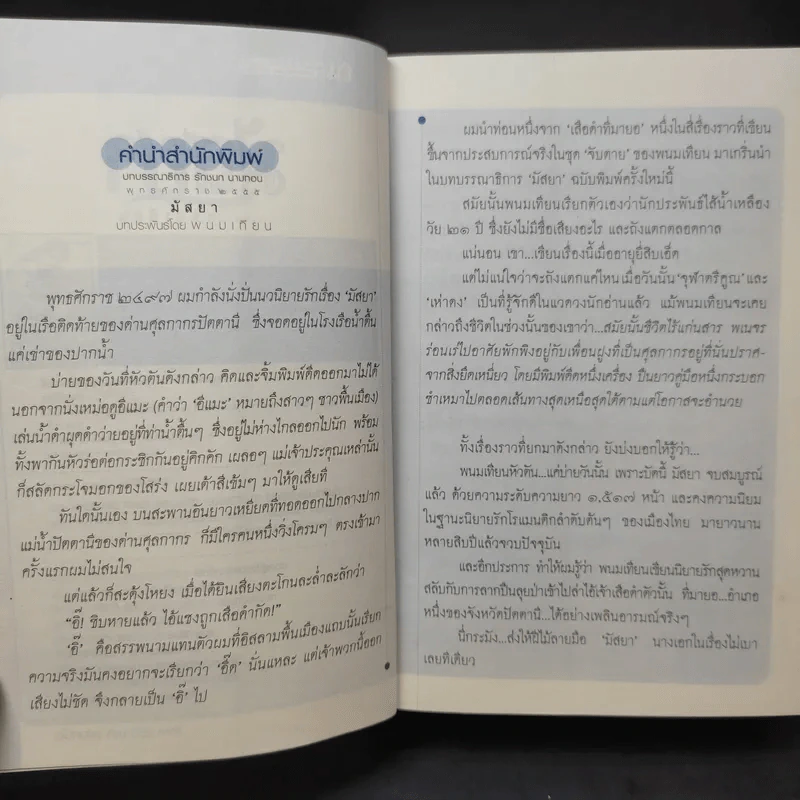 คำนำสำนักพิมพ์
บทบรรณาธิการ รักชนก นามทอน
พุทธศักราช ๒๕๕๕
มัสยา
บทประพันธ์โดย พนมเทียน
พุทธศักราช ๒๔๙๗ ผมกำลังนั่งปั่นนวนิยายรักเรื่อง ‘มัสยา’
อยู่ในเรือติดท้ายของด่านศุลกากรปัตตานี ซึ่งจอดอยู่ในโรงเรือน้ำตื้น
แค่เข่าของปากน้ำ
บ่ายของวันที่หัวตันดังกล่าว คิดและจิ้มพิมพ์ดีดออกมาไม่ได้
นอกจากนั่งเหม่อดูอีแมะ (คำว่า ‘อีแมะ’ หมายถึงสาวๆ ชาวพื้นเมือง)
เล่นน้ำดำผุดดำว่ายอยู่ที่ท่าน้ำตื้นๆ ซึ่งอยู่ไม่ห่างไกลออกไปนัก พร้อม
ทั้งพากันหัวร่อต่อกระซิกกันอยู่คิกคัก เผลอๆ แม่เจ้าประคุณเหล่านั้น
ก็สลัดกระโจมอกของโสร่ง เผยเต้าสีเข้มๆ มาให้ดูเสียที
ทันใดนั้นเอง บนสะพานอันยาวเหยียดที่ทอดออกไปกลางปาก
แม่น้ำปัตตานีของด่านศุลกากร ก็มีใครคนหนึ่งวิ่งโครมๆ ตรงเข้ามา
ครั้งแรกผมไม่สนใจ
แต่แล้วก็สะดุ้งโหยง เมื่อได้ยินเสียงตะโกนละล่ำละลักว่า
“อี๊! ชิบหายแล้ว ไอ้แซงถูกเสือดำกัด!”
‘อี๊’ คือสรรพนามแทนตัวผมที่อิสลามพื้นเมืองแถบนั้นเรียก
ความจริงมันคงอยากจะเรียกว่า ‘อี๊ด’ นั่นแหละ แต่เจ้าพวกนี้ออก
เสียงไม่ชัด จึงกลายเป็น ‘อี๊’ ไป
ผมนำท่อนหนึ่งจาก ‘เสือดำที่มายอ’ หนึ่งในสี่เรื่องราวที่เขียน
ขึ้นจากประสบการณ์จริงในชุด ‘จับตาย’ ของพนมเทียน มาเกริ่นนำ
ในบทบรรณาธิการ ‘มัสยา’ ฉบับพิมพ์ครั้งใหม่นี้
สมัยนั้นพนมเทียนเรียกตัวเองว่านักประพันธ์ไส้น้ำเหลือง
วัย ๒๑ ปี ซึ่งยังไม่มีชื่อเสียงอะไร และถังแตกตลอดกาล
แน่นอน เขา...เขียนเรื่องนี้เมื่ออายุยี่สิบเอ็ด
แต่ไม่แน่ใจว่าจะถังแตกแค่ไหน เมื่อวันนั้น ‘จุฬาตรีคูณ’ และ
‘เห่าดง’ เป็นที่รู้จักดีในแวดวงนักอ่านแล้ว แม้พนมเทียนจะเคย
กล่าวถึงชีวิตในช่วงนั้นของเขาว่า...สมัยนั้นชีวิตไร้แก่นสาร พเนจร
ร่อนเร่ไปอาศัยพักพิงอยู่กับเพื่อนฝูงที่เป็นศุลกากรอยู่ที่นั่นปราศ-
จากสิ่งยึดเหนี่ยว โดยมีพิมพ์ดีดหนึ่งเครื่อง ปืนยาวคู่มือหนึ่งกระบอก
ชำเหมาไปตลอดเส้นทางสุดเหนือสุดใต้ตามแต่โอกาสจะอำนวย
ทั้งเรื่องราวที่ยกมาดังกล่าว ยังบ่งบอกให้รู้ว่า...
พนมเทียนหัวตัน...แค่บ่ายวันนั้น เพราะบัดนี้ มัสยา จบสมบูรณ์
แล้ว ด้วยความระดับความยาว ๑,๕๑๗ หน้า และคงความนิยม
ในฐานะนิยายรักโรแมนติกลำดับต้นๆ ของเมืองไทย มายาวนาน
หลายสิบปีแล้วจวบปัจจุบัน
และอีกประการ ทำให้ผมรู้ว่า พนมเทียนเขียนนิยายรักสุดหวาน
สลับกับการลากปืนลุยป่าเข้าไปล่าไอ้เจ้าเสือดำตัวนั้น ที่มายอ...อำเภอ
หนึ่งของจังหวัดปัตตานี...ได้อย่างเพลินอารมณ์จริงๆ
นี่กระมัง...ส่งให้ฝีไม้ลายมือ ‘มัสยา’ นางเอกในเรื่องไม่เบา
เลยทีเดียว